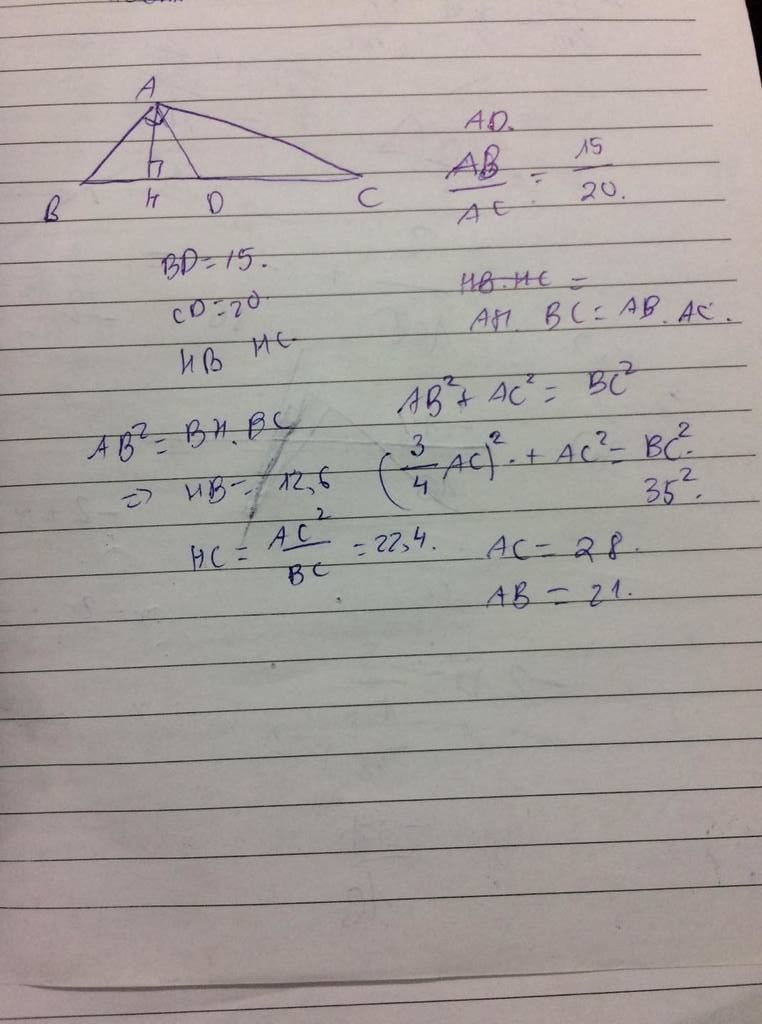 A
B H D C
AD.
AB/AC = 15/20.
BD = 15.
CD = 20.
HB HC
HB.HC =
AH. BC = AB. AC.
AB² + AC² = BC²
AB² = BH. BC
(3/4 AC)². + AC² = BC².
35².
=> HB = 12,6
HC = AC²/BC = 22,4.
AC = 28.
AB = 21.